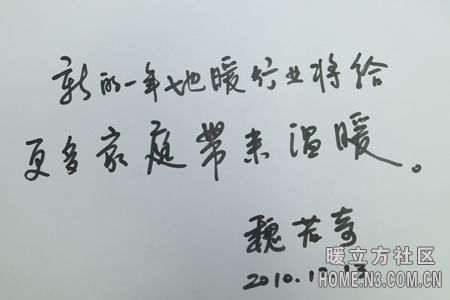 新的一年地暖行业将给
更多家庭带来温暖。
魏若奇
2010.12.13
暖立方社区
HOME.N3.COM.CN